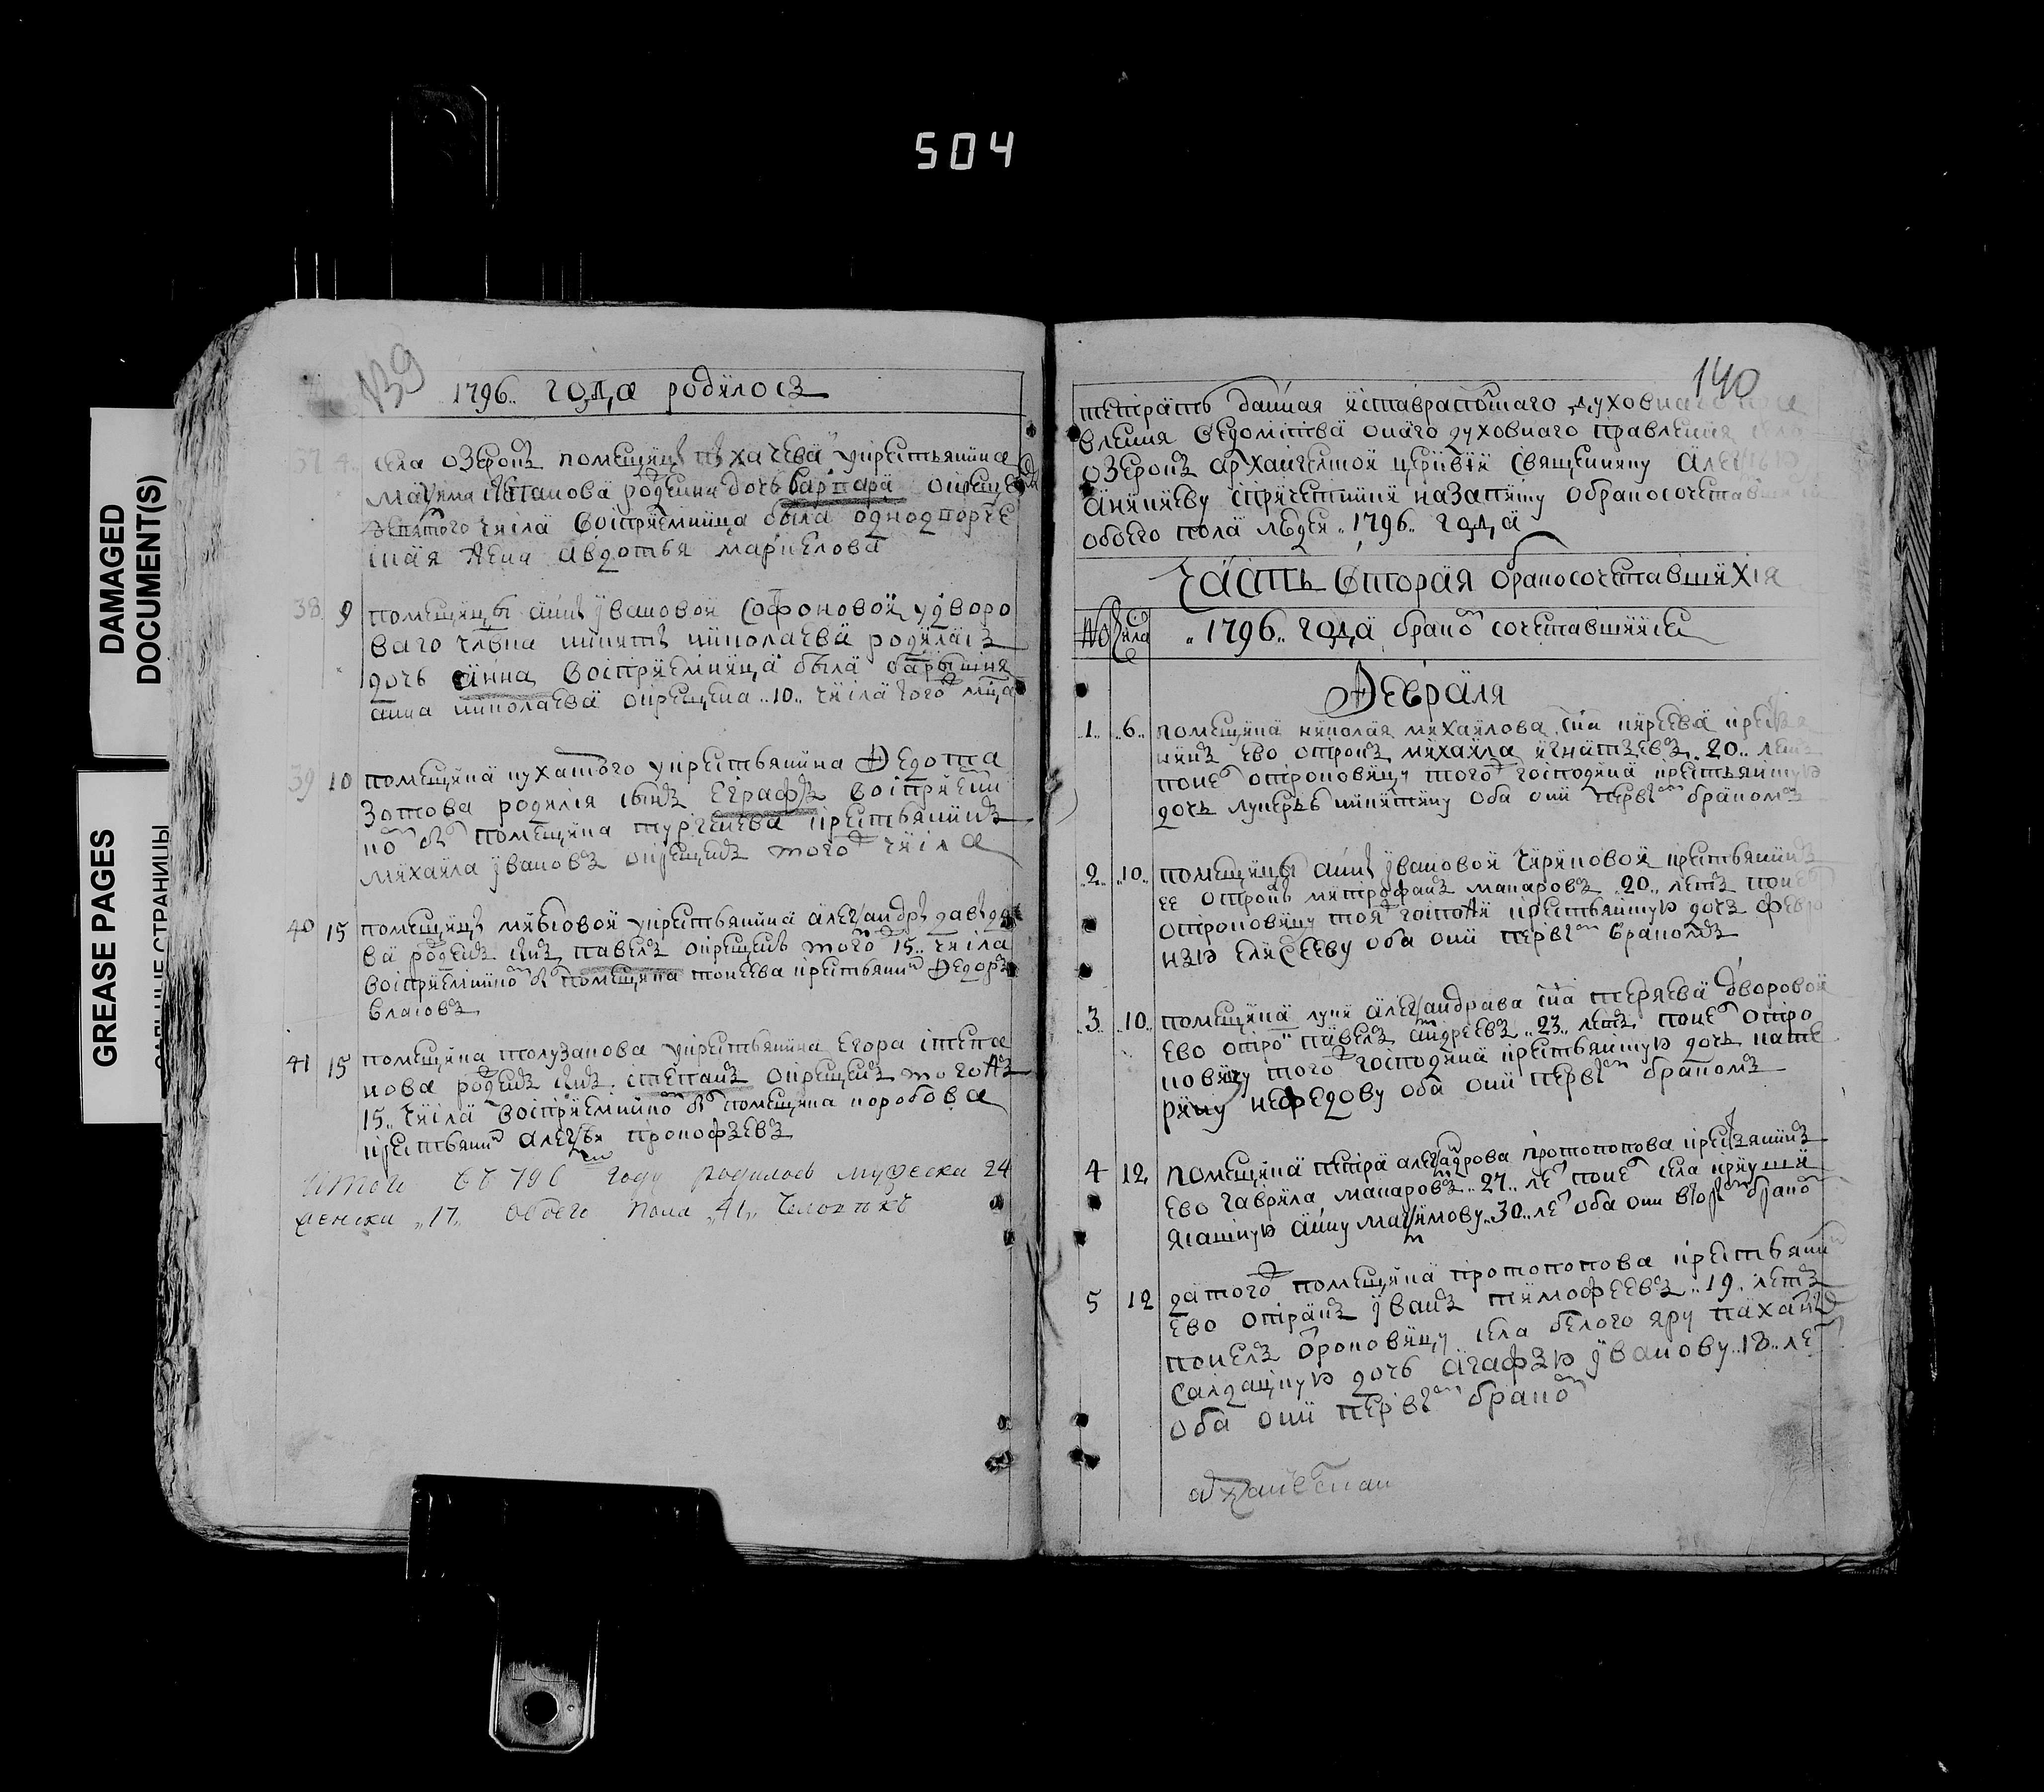 504
DAMAGED
DOCUMENT(S)
GREASE PAGES
САЛЬНЫЕ СТРАНИЦЫ
139
1796 года родилось
37 4 села озерокъ помещицы пухачева укрестьянина
максима степанова родилии дочь варвара крещена
того числа восприемница была однодворче
ская жена авдотья маркелова
38 9 помещицы анны ивановой софоновой удворо
ваго члвка никиты николаева родилась
дочь анна восприемница была барышня
анна николаева окрещена 10 числа того мца
39 10 помещика пухатого укрестьянина Федота
зотова родился сынъ еграфъ восприемни
ко бы помещика тургенева крестьянинъ
михаила ивановъ окрещенъ того числа
40 15 помещицы укрестьянина александры давыдо
ва родился снъ павелъ окрещенъ того 15 числа
восприемнико бы помещика тонеева крестьяни Федоръ
власовъ
41 15 помещика толузакова укрестьянина Егора степа
нова родился снъ степанъ окрещенъ того жъ
15 числа восприемнико бы помещика коробова
крестьяни алексѣй прокофьевъ
Итого въ 796 году родилось мужеска 24
женска 17 обоего пола 41 человекъ
140
тетрать данная изставрапошаго духовнаго пра
вления ведомства онаго духовнаго правления села
озерокъ архангелской церкви священнику алексѣю
ананьеву спричетники назаписку обракосочетавшихся
обоего пола людей 1796 года
Часть вторая бракосочетавшихся
№ числа 1796 года брако сочетавшиися
Февраля
1 6 помещика николая михайлова сна киреева кресья
нинъ ево отрокъ михаила игнатьевъ 20 летъ
поне отроковицу того господина крестьянскую
дочь лукерью никитину оба они первы бракомъ
2 10 помещицы анны ивановой чириковой крестьянинъ
ее отрокъ митрофанъ макаровъ 20 летъ поне
отроковицу тоя госпожи крестьянскую дочь февро
нью елисееву оба они первы бракомъ
3 10 помещика луки александрава сна теряева дворовой
ево отро павелъ андреевъ 23 летъ поне отро
ковицу того господина крестьянскую дочь кате
рину нефедову оба они первы бракомъ
4 12 помещика петра александрова протопопова кресьянинъ
ево гаврила макаровъ 27 ле поне села
ясашную анну максимову 30 ле оба они вторы брако
5 12 того помещика протопопова крестьяни
ево отракъ иванъ тимофеевъ 19 летъ
понелъ отроковицу села белого яру пахатно
салдацкую дочь агафью иванову 18 ле
оба они первы брако